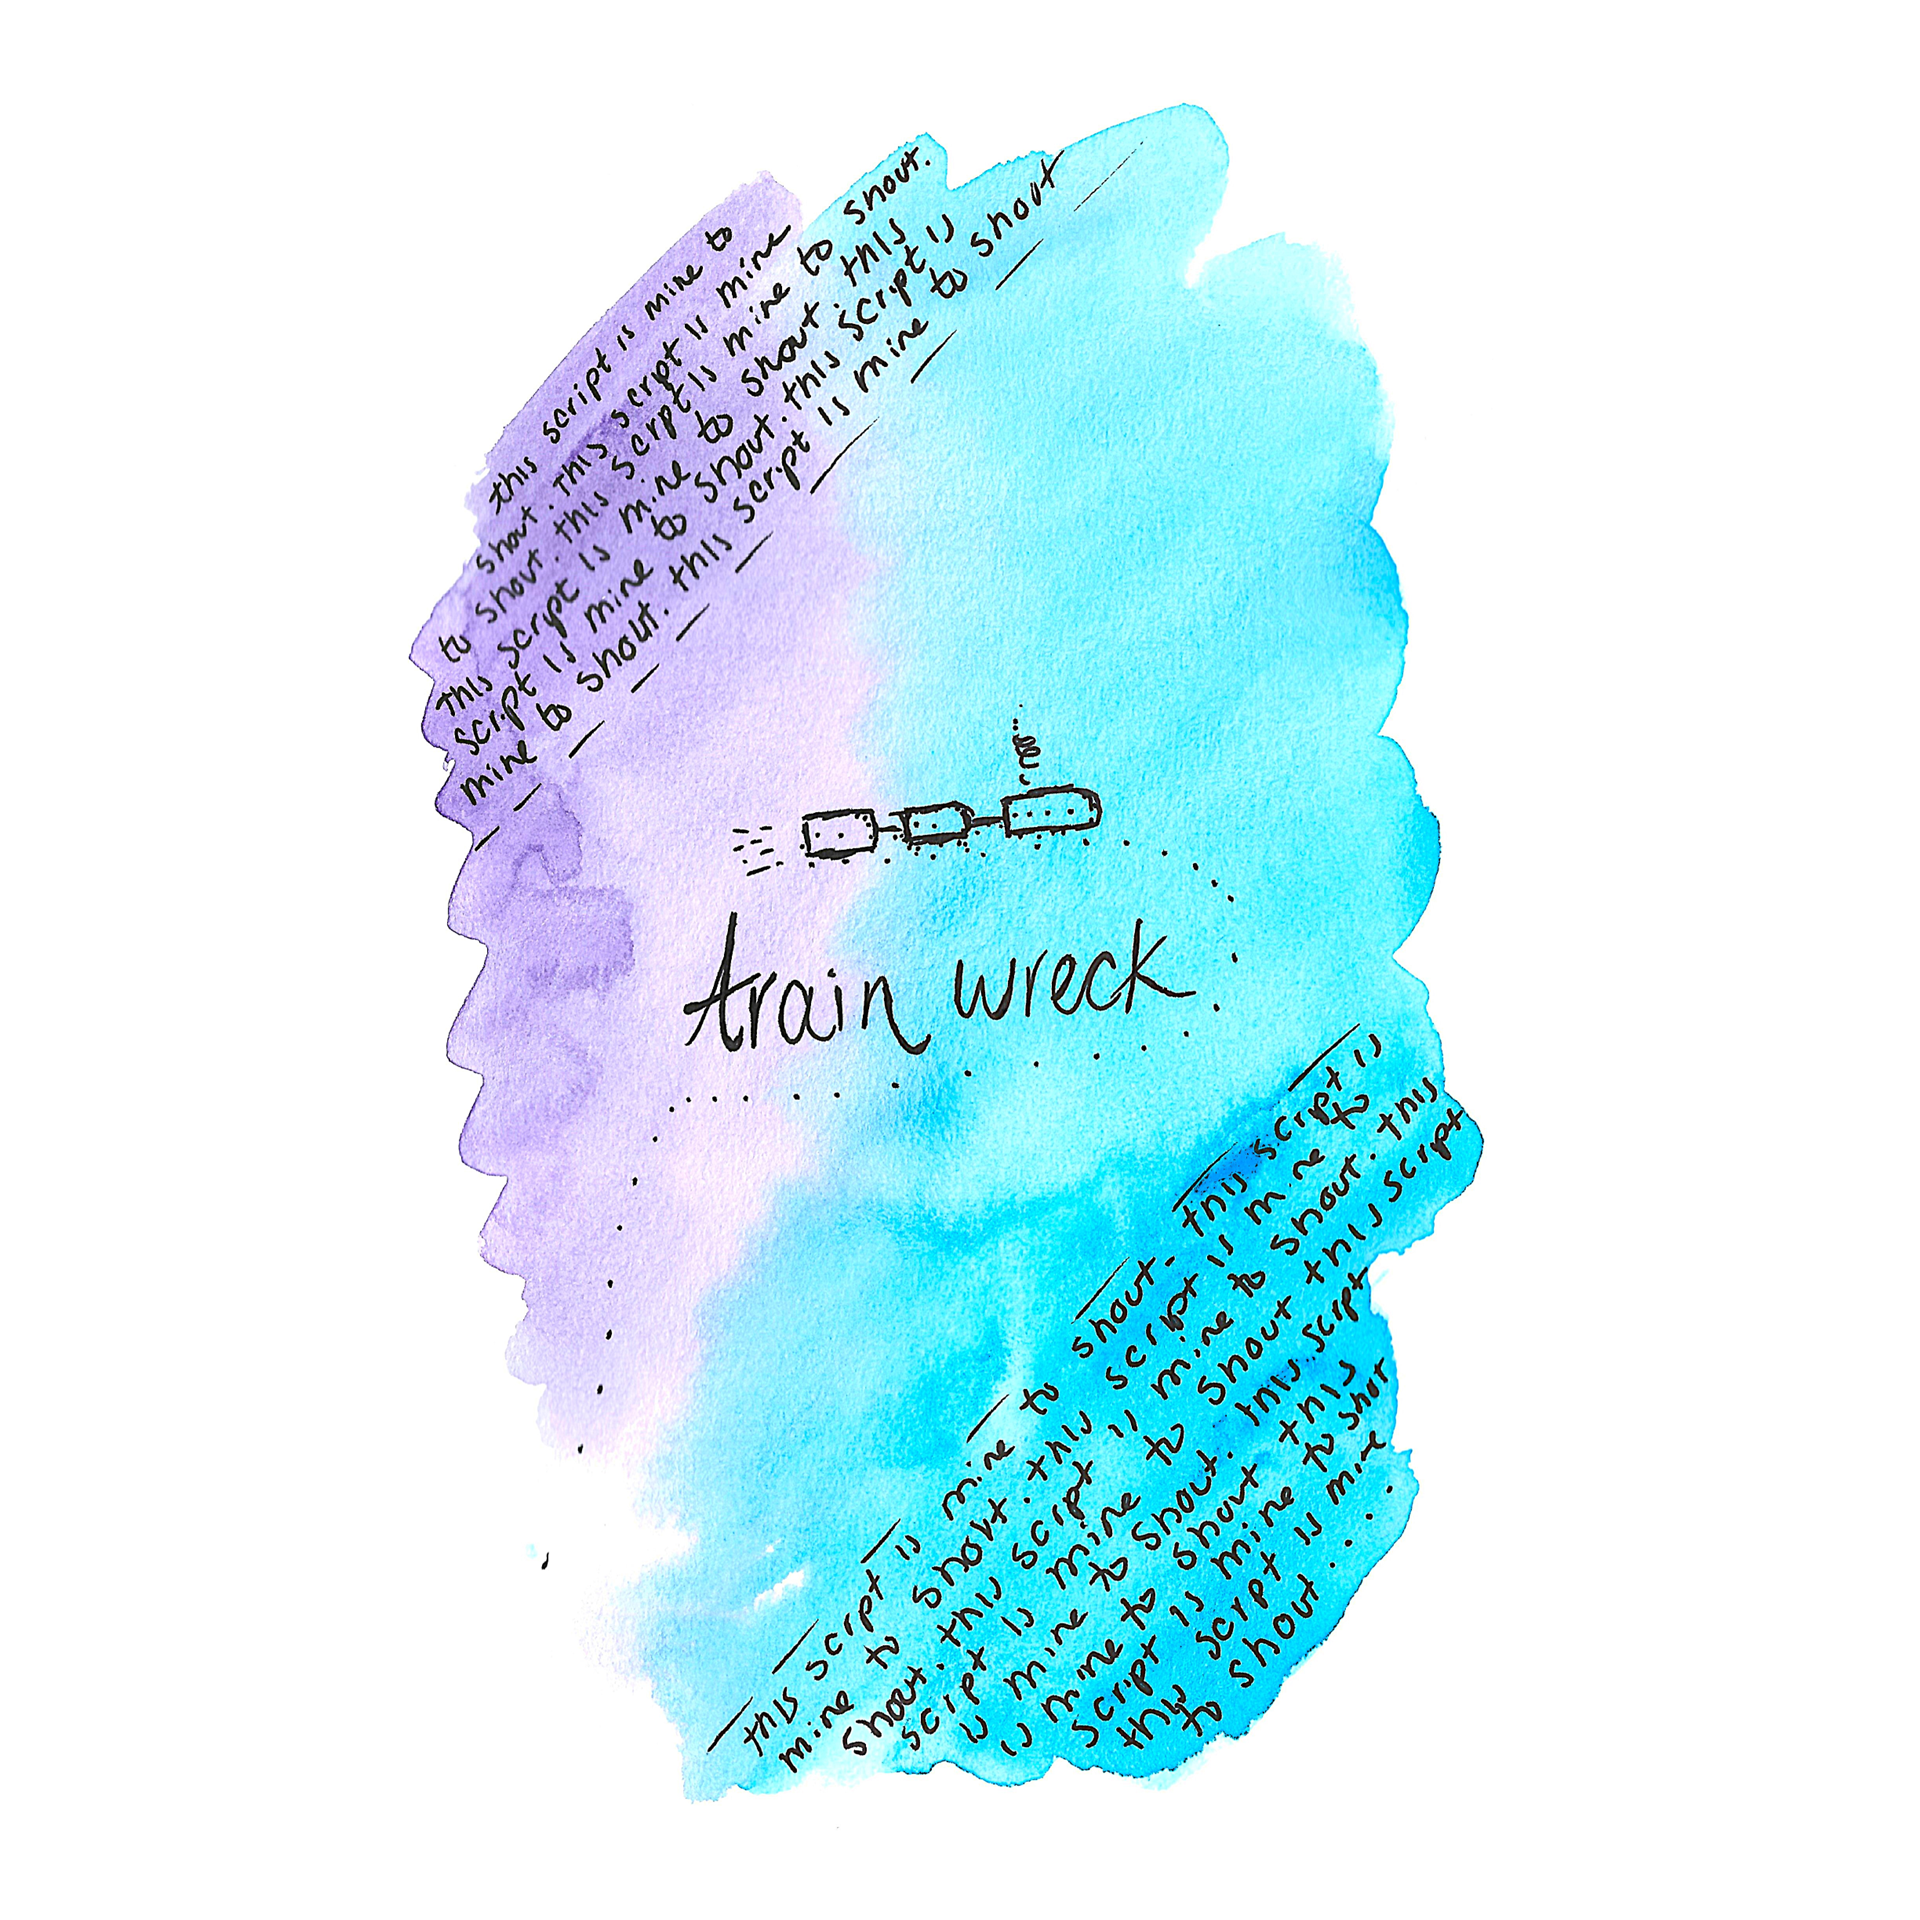 this script is mine to
shout. this script is mine
to shout. this script is mine to shout.
this script is mine to shout. this
script is mine to shout. this script is
mine to shout. this script is mine to shout
train wreck
this script is mine to shout. this script is
mine to shout. this script is mine to
shout. this script is mine to shout. this
script is mine to shout this script
is mine to shout. this script
is mine to shout this
script is mine to shot
this script is mine
to shout....